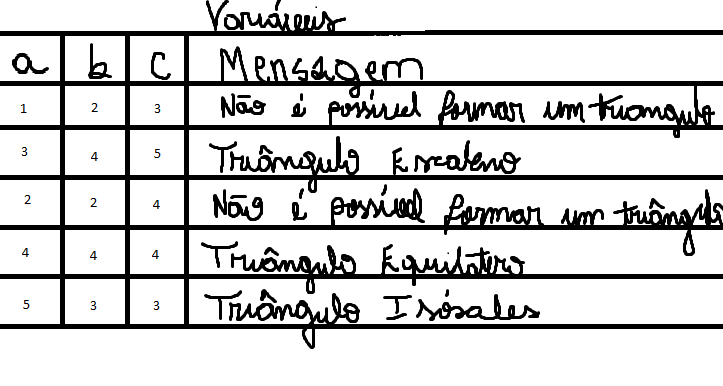 Variáveis
a b c Mensagem
1 2 3 Não é possível formar um triangulo
3 4 5 Triângulo Escaleno
2 2 4 Não é possível formar um triângulo
4 4 4 Triângulo Equilátero
5 3 3 Triângulo Isósales